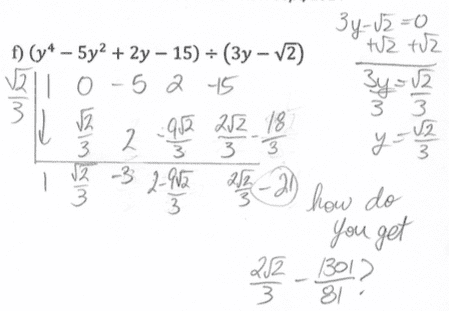 3y-√2=0
+√2 +√2
f) (y⁴ – 5y² + 2y – 15) ÷ (3y – √2)
3y/3 = √2/3
y = √2/3
√2/3 | 1 0 -5 2 -15
↓ √2/3 2 -9√2/3 2√2/3 - 18/3
1 √2/3 -3 2-9√2/3 2√2/3 - 21
how do
you get
2√2/3 - 1301/81?